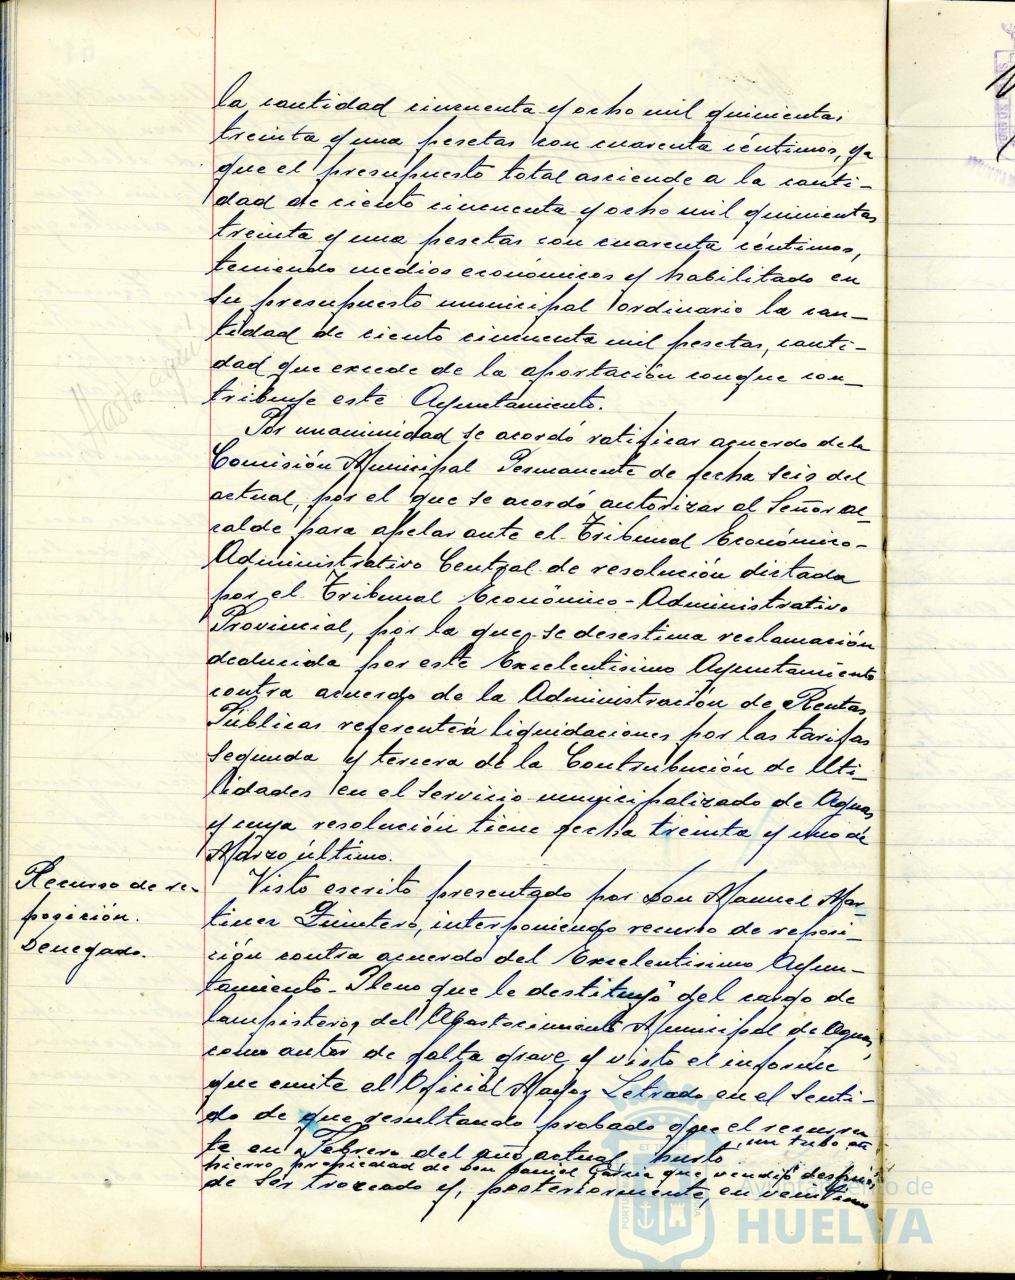 la cantidad cincuenta y ocho mil quinientas
treinta y una pesetas con cuarenta céntimos, ya
que el presupuesto total asciende a la canti-
dad de ciento cincuenta y ocho mil quinientas
treinta y una pesetas con cuarenta céntimos,
teniendo medios económicos y habilitado en
su presupuesto municipal ordinario la can-
tidad de ciento cincuenta mil pesetas, canti-
dad que excede de la aportación conque con-
tribuye este Ayuntamiento.
Hasta aquí
Por unanimidad se acordó ratificar acuerdo de la
Comisión Municipal Permanente de fecha seis del
actual, por el que se acordó autorizar al Señor Al-
calde para apelar ante el Tribunal Económico-
Administrativo Central de resolución dictada
por el Tribunal Económico-Administrativo
Provincial, por la que se desestima reclamación
deducida por este Excelentísimo Ayuntamiento
contra acuerdo de la Administración de Rentas
Públicas referente a liquidaciones por las tarifas
segunda y tercera de la Contribución de Uti-
lidades en el servicio municipalizado de Aguas
y cuya resolución tiene fecha treinta y uno de
Marzo último.
Recurso de re-
posición.
Denegado.
Visto escrito presentado por Don Manuel Mar-
tinez Quintero, interponiendo recurso de reposi-
ción contra acuerdo del Excelentisimo Ayun-
tamiento-Pleno que le destituyó del cargo de
lampistero, del Abastecimiento Municipal de Aguas,
como autor de falta grave y visto el informe
que emite el Oficial Mayor Letrado en el senti-
do de que resultando probado que el recurren
te en Febrero del año actual, hurtó un tubo de
hierro propiedad de Don Daniel García que vendió después
de ser trozeado y, posteriormente, en
Ayuntamiento de
HUELVA